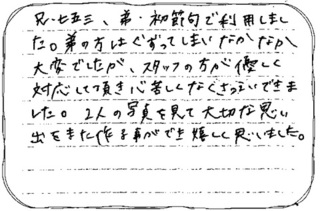 兄・七五三、弟・初節句で利用しまし
た。弟の方はぐずってしまいなかなか
大変でしたが、スタッフの方が優しく
対応して頂き心苦しなくさつえいできま
した。2人の写真を見て大切な思い
出をまた作る事ができ嬉しく思いました。